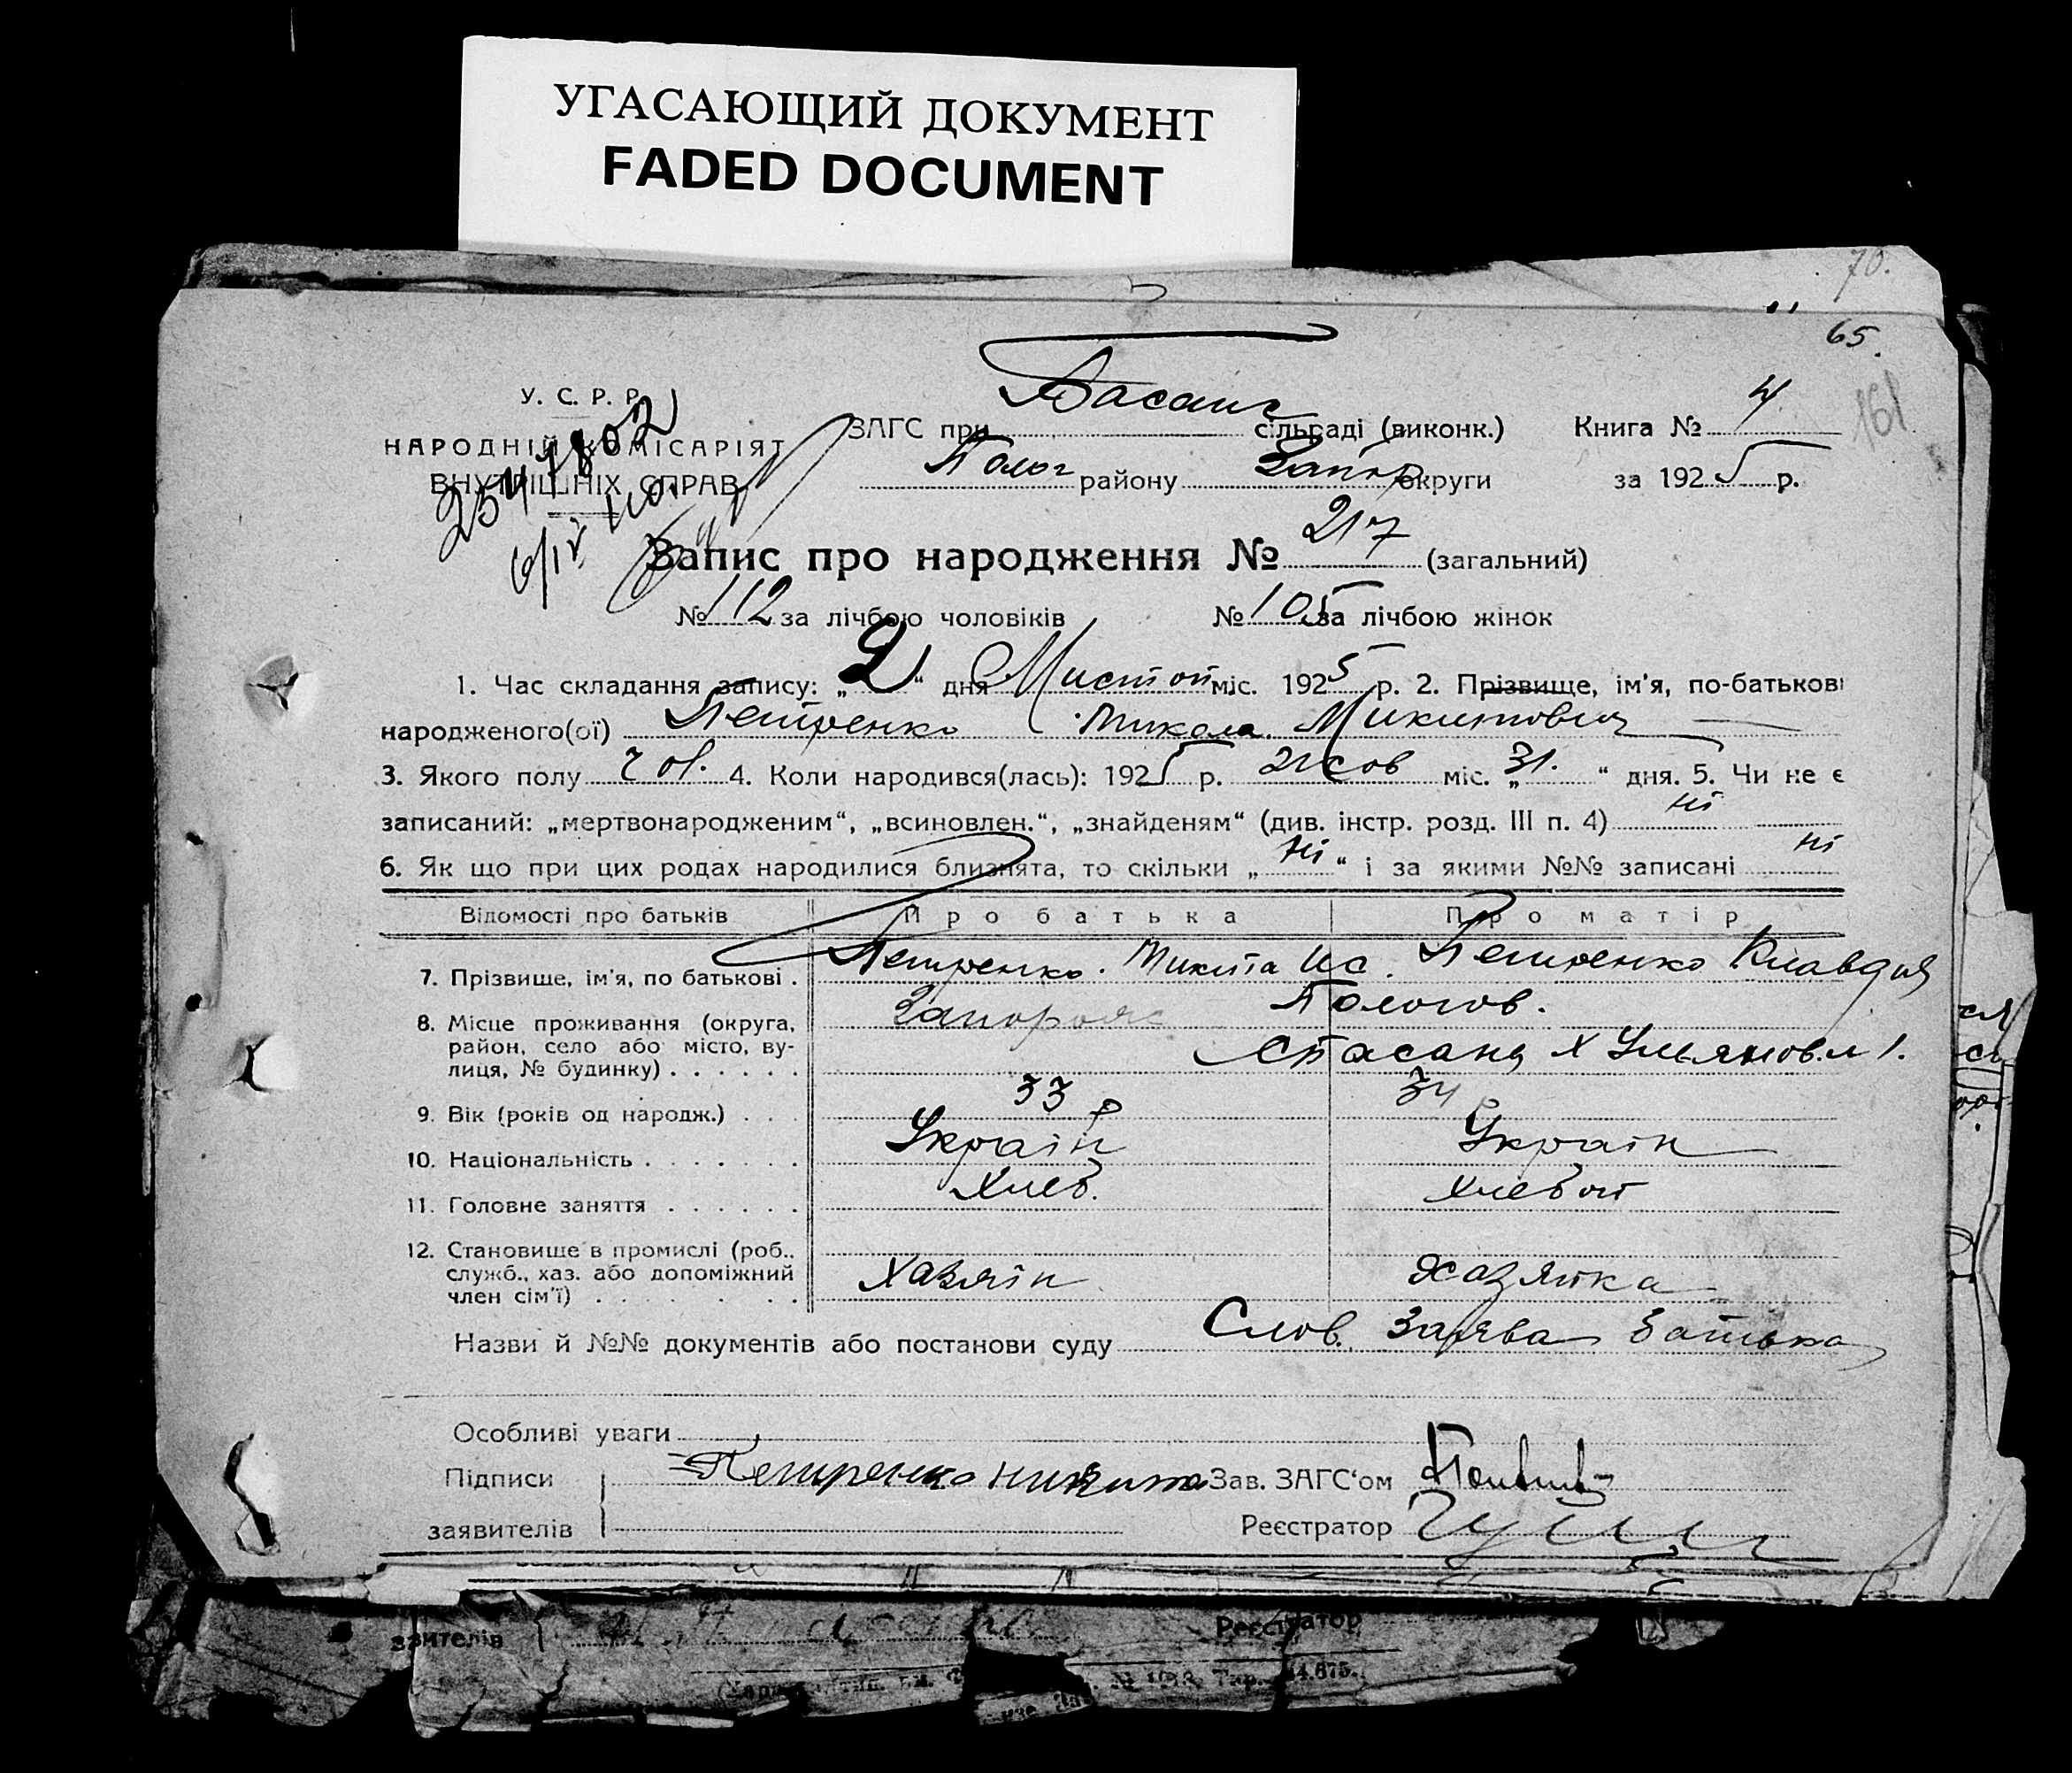 УГАСАЮЩИЙ ДОКУМЕНТ
FADED DOCUMENT
70.
65.
161
У. С. Р. Р.
НАРОДНІЙ КОМІСАРІЯТ
ВНУТРІШНІХ СПРАВ
ЗАГС при Басанс сільраді (виконк.) Книга № 4
Полог району Запор округи за 1925 р.
Запис про народження № 217 (загальний)
№ 112 за лічбою чоловіків № 105 за лічбою жінок
1. Час складання запису: „2“ дня Листоп міс. 1925 р. 2. Прізвище, ім'я, по-батькові
народженого(ої) Петренко Микола Микитович
3. Якого полу чол. 4. Коли народився(лась): 1925 р. міс. „31.“ дня. 5. Чи не є
записаний: „мертвонародженим“, „всиновлен.“, „знайденям“ (див. інстр. розд. III п. 4) ні
6. Як що при цих родах народилися близнята, то скільки „ні“ і за якими №№ записані ні
Відомості про батьків Про батька Про матір
7. Прізвище, ім'я, по батькові . Петренко Микита Ис. Петренко Клавдия
8. Місце проживання (округа, Запорожс Пологов.
район, село або місто, ву-
лиця, № будинку) . . . . . . с Басань Х Ульянов. 1.
9. Вік (років од народж.) . . 33 р 34 р
10. Національність . . . . . . . Україн Україн
11. Головне заняття . . . . . . Хлеб. Хлебот
12. Становище в промислі (роб.,
служб., хаз. або допоміжний
член сім'ї) . . . . . . Хазяін Хазяйка
Назви й №№ документів або постанови суду Слов. Заява батька
Особливі уваги
Підписи Петренко Никита Зав. ЗАГС'ом
заявителів Реєстратор
заявителів Реєстратор